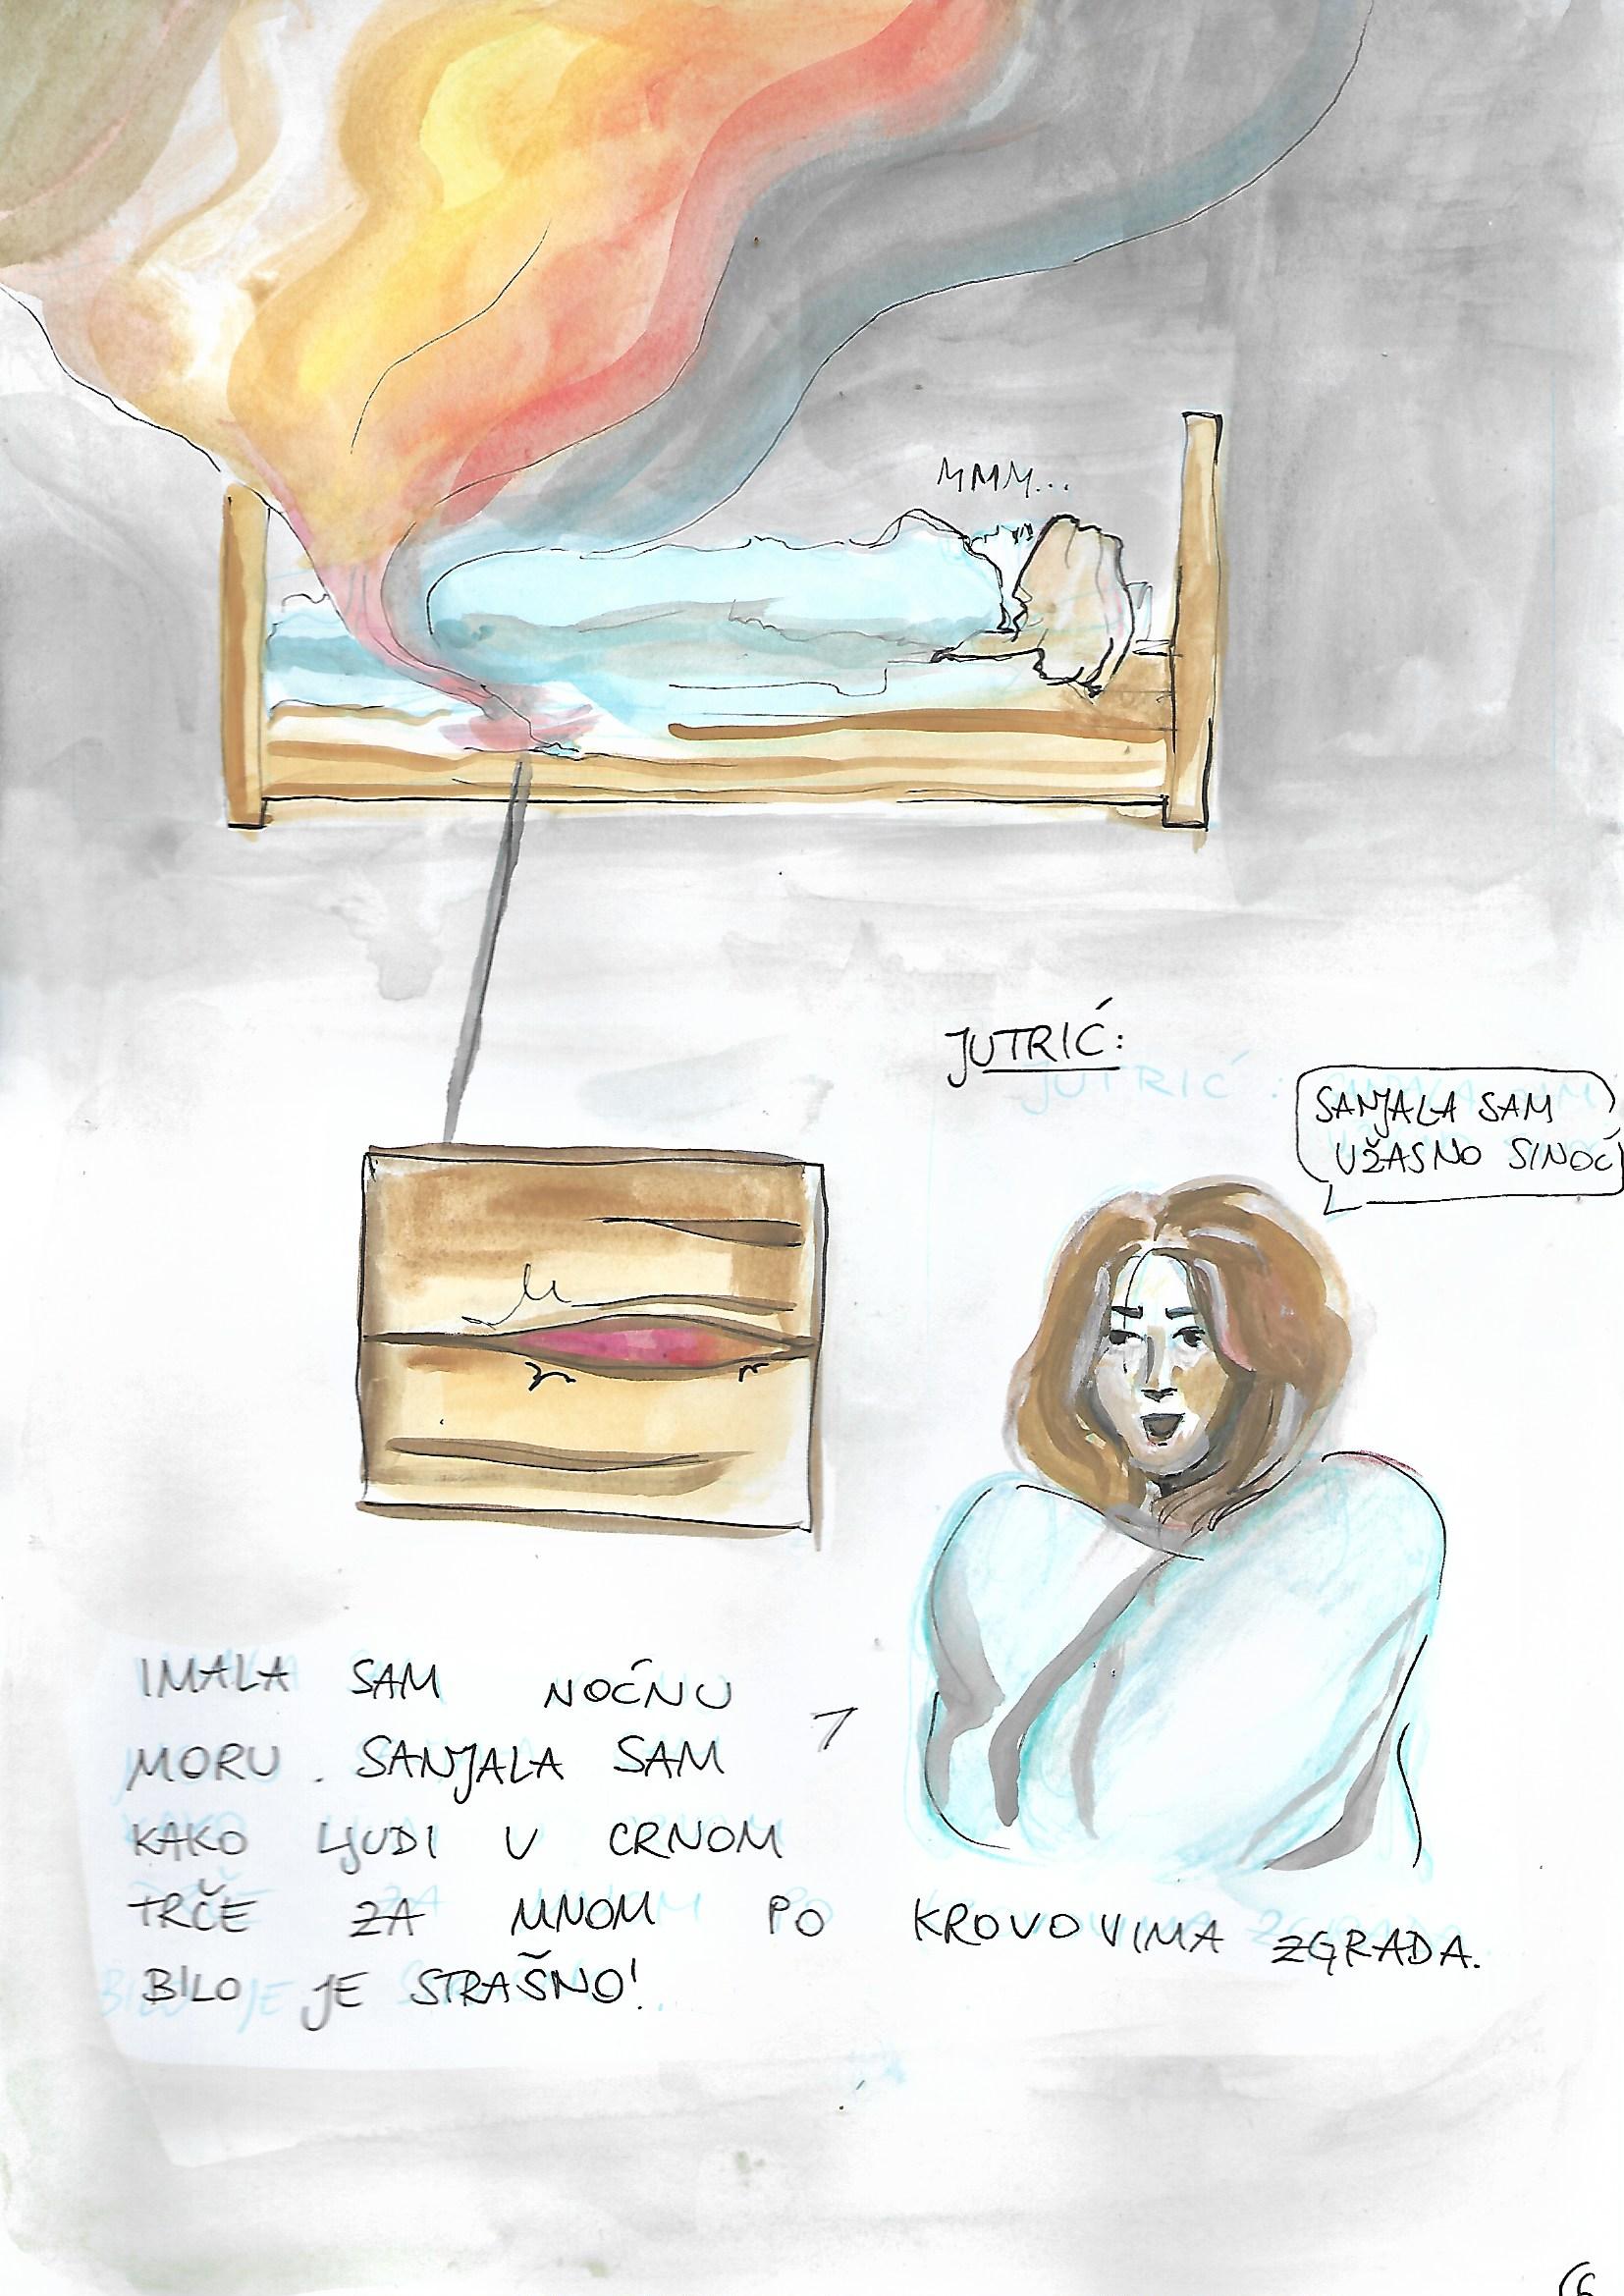 MMM...
JUTRIĆ:
SANJALA SAM
UŽASNO SINOĆ
IMALA SAM NOĆNU
MORU. SANJALA SAM
KAKO LJUDI U CRNOM
TRČE ZA MNOM PO KROVOVIMA ZGRADA.
BILO JE STRAŠNO!
6